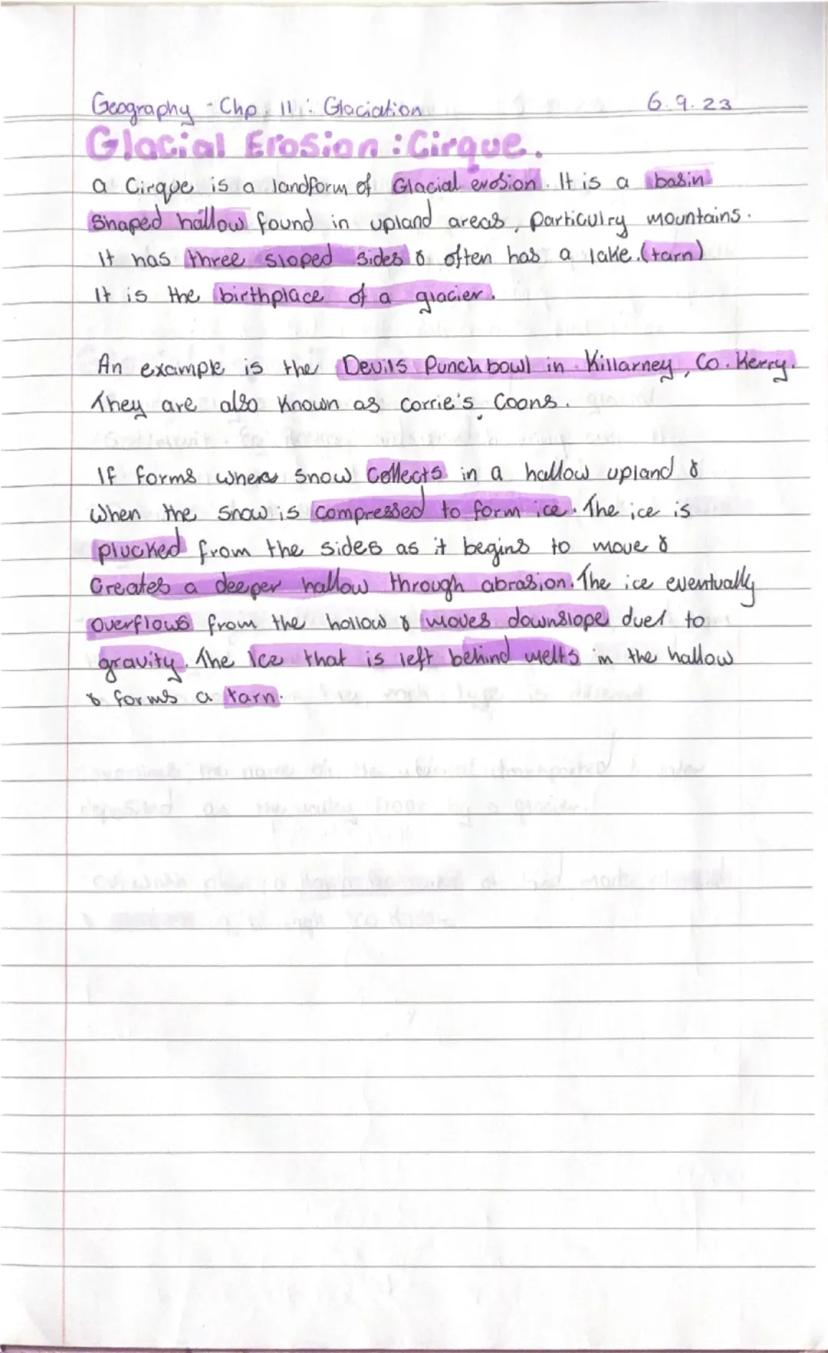 Geography - Chp. 11 : Glaciation 6.9.23
Glacial Erosion : Cirque.
a Cirque is a landform of Glacial erosion. It is a basin
Shaped hallow found in upland areas, particulry mountains.
It has three sloped sides & often has a lake. (tarn)
It is the birthplace of a glacier.
An example is the Devils Punchbowl in Killarney, Co. Kerry.
They are also known as corrie's, Coons.
If forms where snow collects in a hallow upland &
when the snow is compressed to form ice. The ice is
plucked from the sides as it begins to move &
Creates a deeper hallow through abrasion. The ice eventually
overflows from the hollow & moves downslope duet to
gravity. The Ice that is left behind melts in the hallow
& forms a tarn.